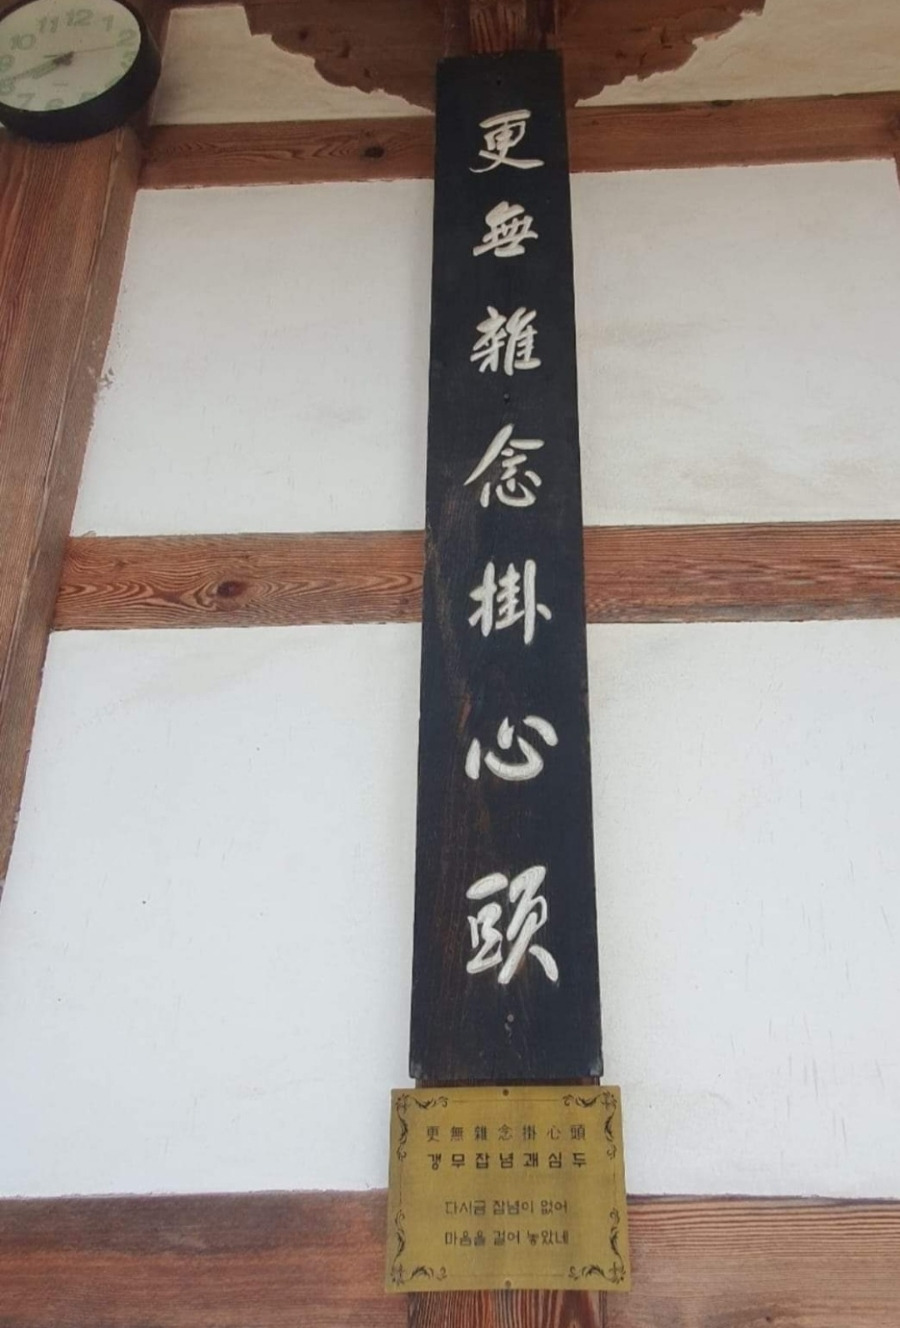 11 12 1
10 2
9 3
8
7 6 5
更無雜念掛心頭
更無雜念掛心頭
갱무잡념괘심두
다시금 잡념이 없어
마음을 걸어 놓았네